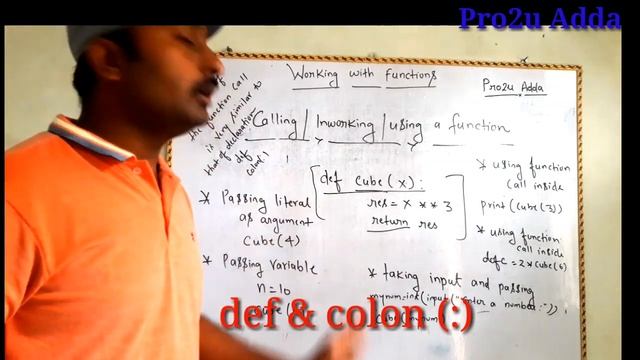 Pro2u Adda
Working with functions
Pro2u Adda
the function call
is very similar to
that of declaration
def
colon:
Calling/Inworking/using a function
def cube(x):
res = x ** 3
return res
* Passing literal
as argument
cube(4)
* Passing variable
n=10
* using function
call inside
print(cube(3))
* using function
call inside
defc = 2*cube(6)
* taking input and passing
mynum=int(input("enter a number:"))
def & colon (:)